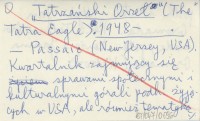 "Tatrzański Orzeł" (The
Tatra Eagle). 1948-
- Passaic (New Jersey, USA).
Kwartalnik zajmujący się
sprawami społecznymi i
kulturalnymi górali podh. żyją-
cych w USA, ale również tematyką